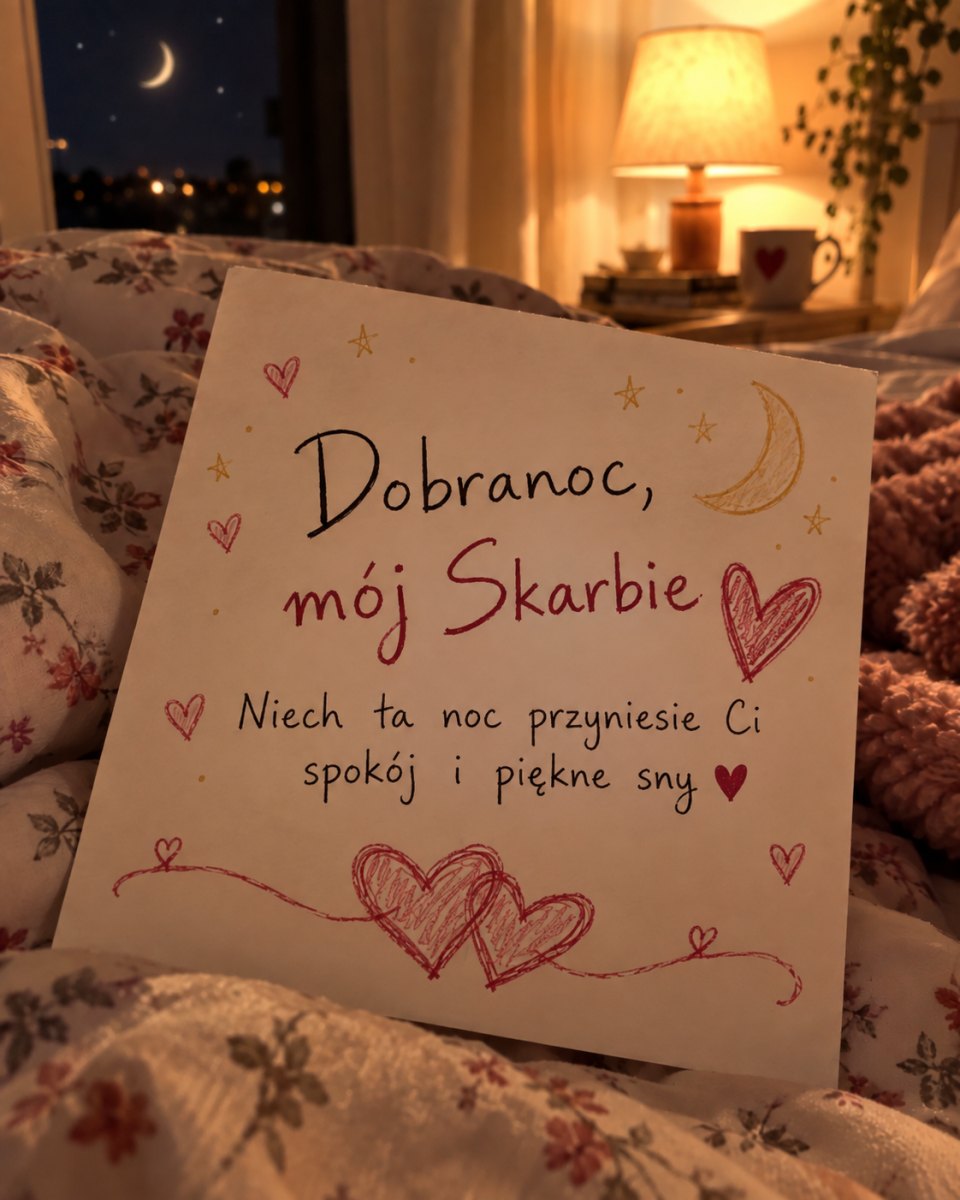 Dobranoc,
mój Skarbie
Niech ta noc przyniesie Ci
spokój i piękne sny